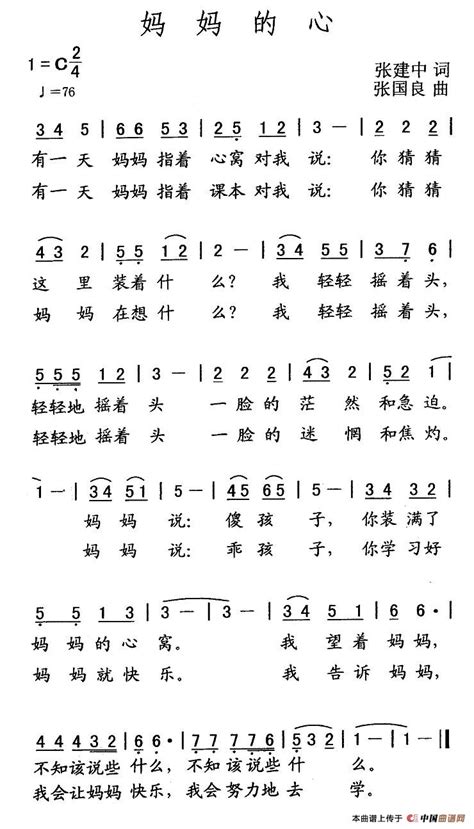 妈妈的心
1=C 2/4
张建中 词
♩=76
张国良 曲
3 4 5 | 6 6 5 3 | 2 5 1 2 | 3 - | 2 2 2 2 |
有一天 妈妈 指着 心窝 对我 说: 你 猜 猜
有一天 妈妈 指着 课本 对我 说: 你 猜 猜
4 3 2 | 5 5 1 2 | 2 - | 3 4 5 5 | 3 7 6 |
这 里 装着 什 么? 我 轻轻 摇 着 头,
妈 妈 在想 什 么? 我 轻轻 摇 着 头,
5 5 5 1 2 | 3 - | 2 2 2 | 4 3 5 2 | 1 |
轻轻地 摇着 头 一 脸 的 茫 然 和急 迫。
轻轻地 摇着 头 一 脸 的 迷 惘 和焦 灼。
1 - | 3 4 5 1 | 5 - | 4 5 6 5 | 5 - | 3 4 3 2 |
妈 妈 说: 傻 孩 子, 你装 满了
妈 妈 说: 乖 孩 子, 你学 习好
5 5 | 3 2 1 | 3 - | 3 - | 3 4 5 1 | 6 6 |
妈 妈 的 心 窝。 我 望 着 妈 妈,
妈 妈 就 快 乐。 我 告 诉 妈 妈,
4 4 4 4 3 2 | 6 6· | 7 7 7 7 6 | 5 3 2 | 1 - ‖
不知 该说些 什么, 不知 该说些 什 么。
我会 让妈妈 快乐, 我会 努力地 去 学。
本曲谱上传于 中国曲谱网